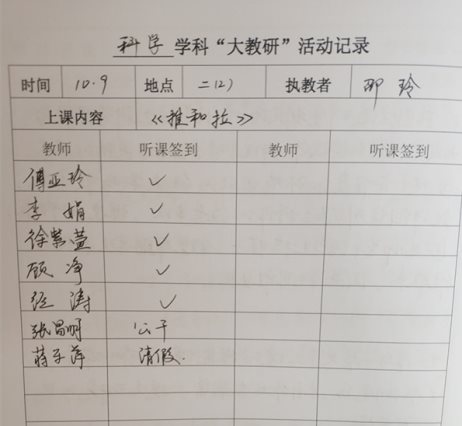 科学 学科“大教研”活动记录
时间 10.9 地点 二(2) 执教者 邵玲
上课内容 《推和拉》
教师 听课签到 教师 听课签到
傅亚玲 ✓
李娟 ✓
徐紫萱 ✓
顾净 ✓
涛 ✓
张昌明 公干
蒋子萍 请假.